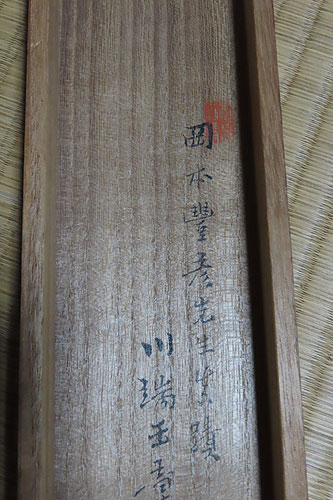 岡本豐彦先生真蹟
川端玉章